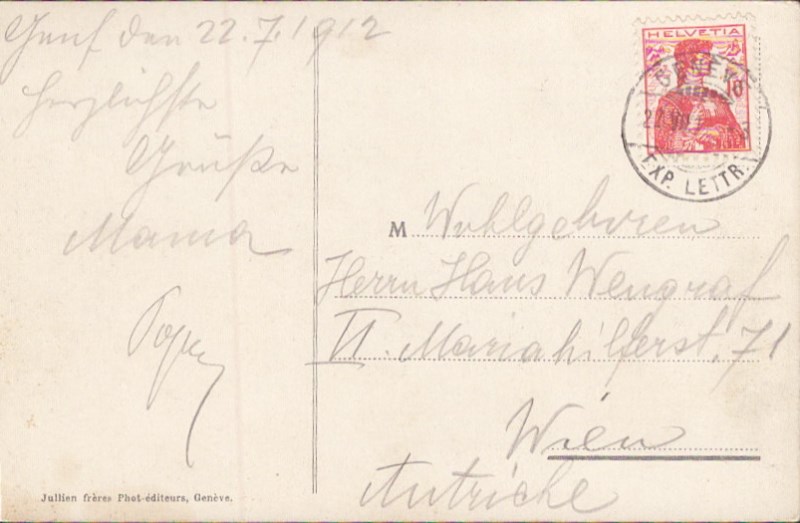 Genf den 22.7.1912
Herzlichste
Grüße
Mama
Papa
Jullien frères Phot-éditeurs, Genève.
HELVETIA
10
GENÈVE
EXP. LETTR.
M Wohlgeboren
Herrn Hans Wengraf
VI. Mariahilferst. 71
Wien
Autriche